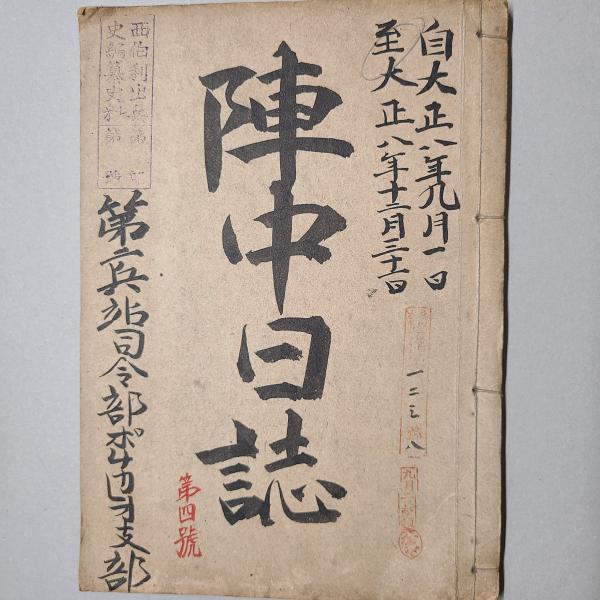 自大正八年九月一日
至大正八年十二月三十一日
陣中日誌
第四號
西伯利出兵第 部
史編纂史料第 號
第二兵站司令部ポグラ支部
一二三八